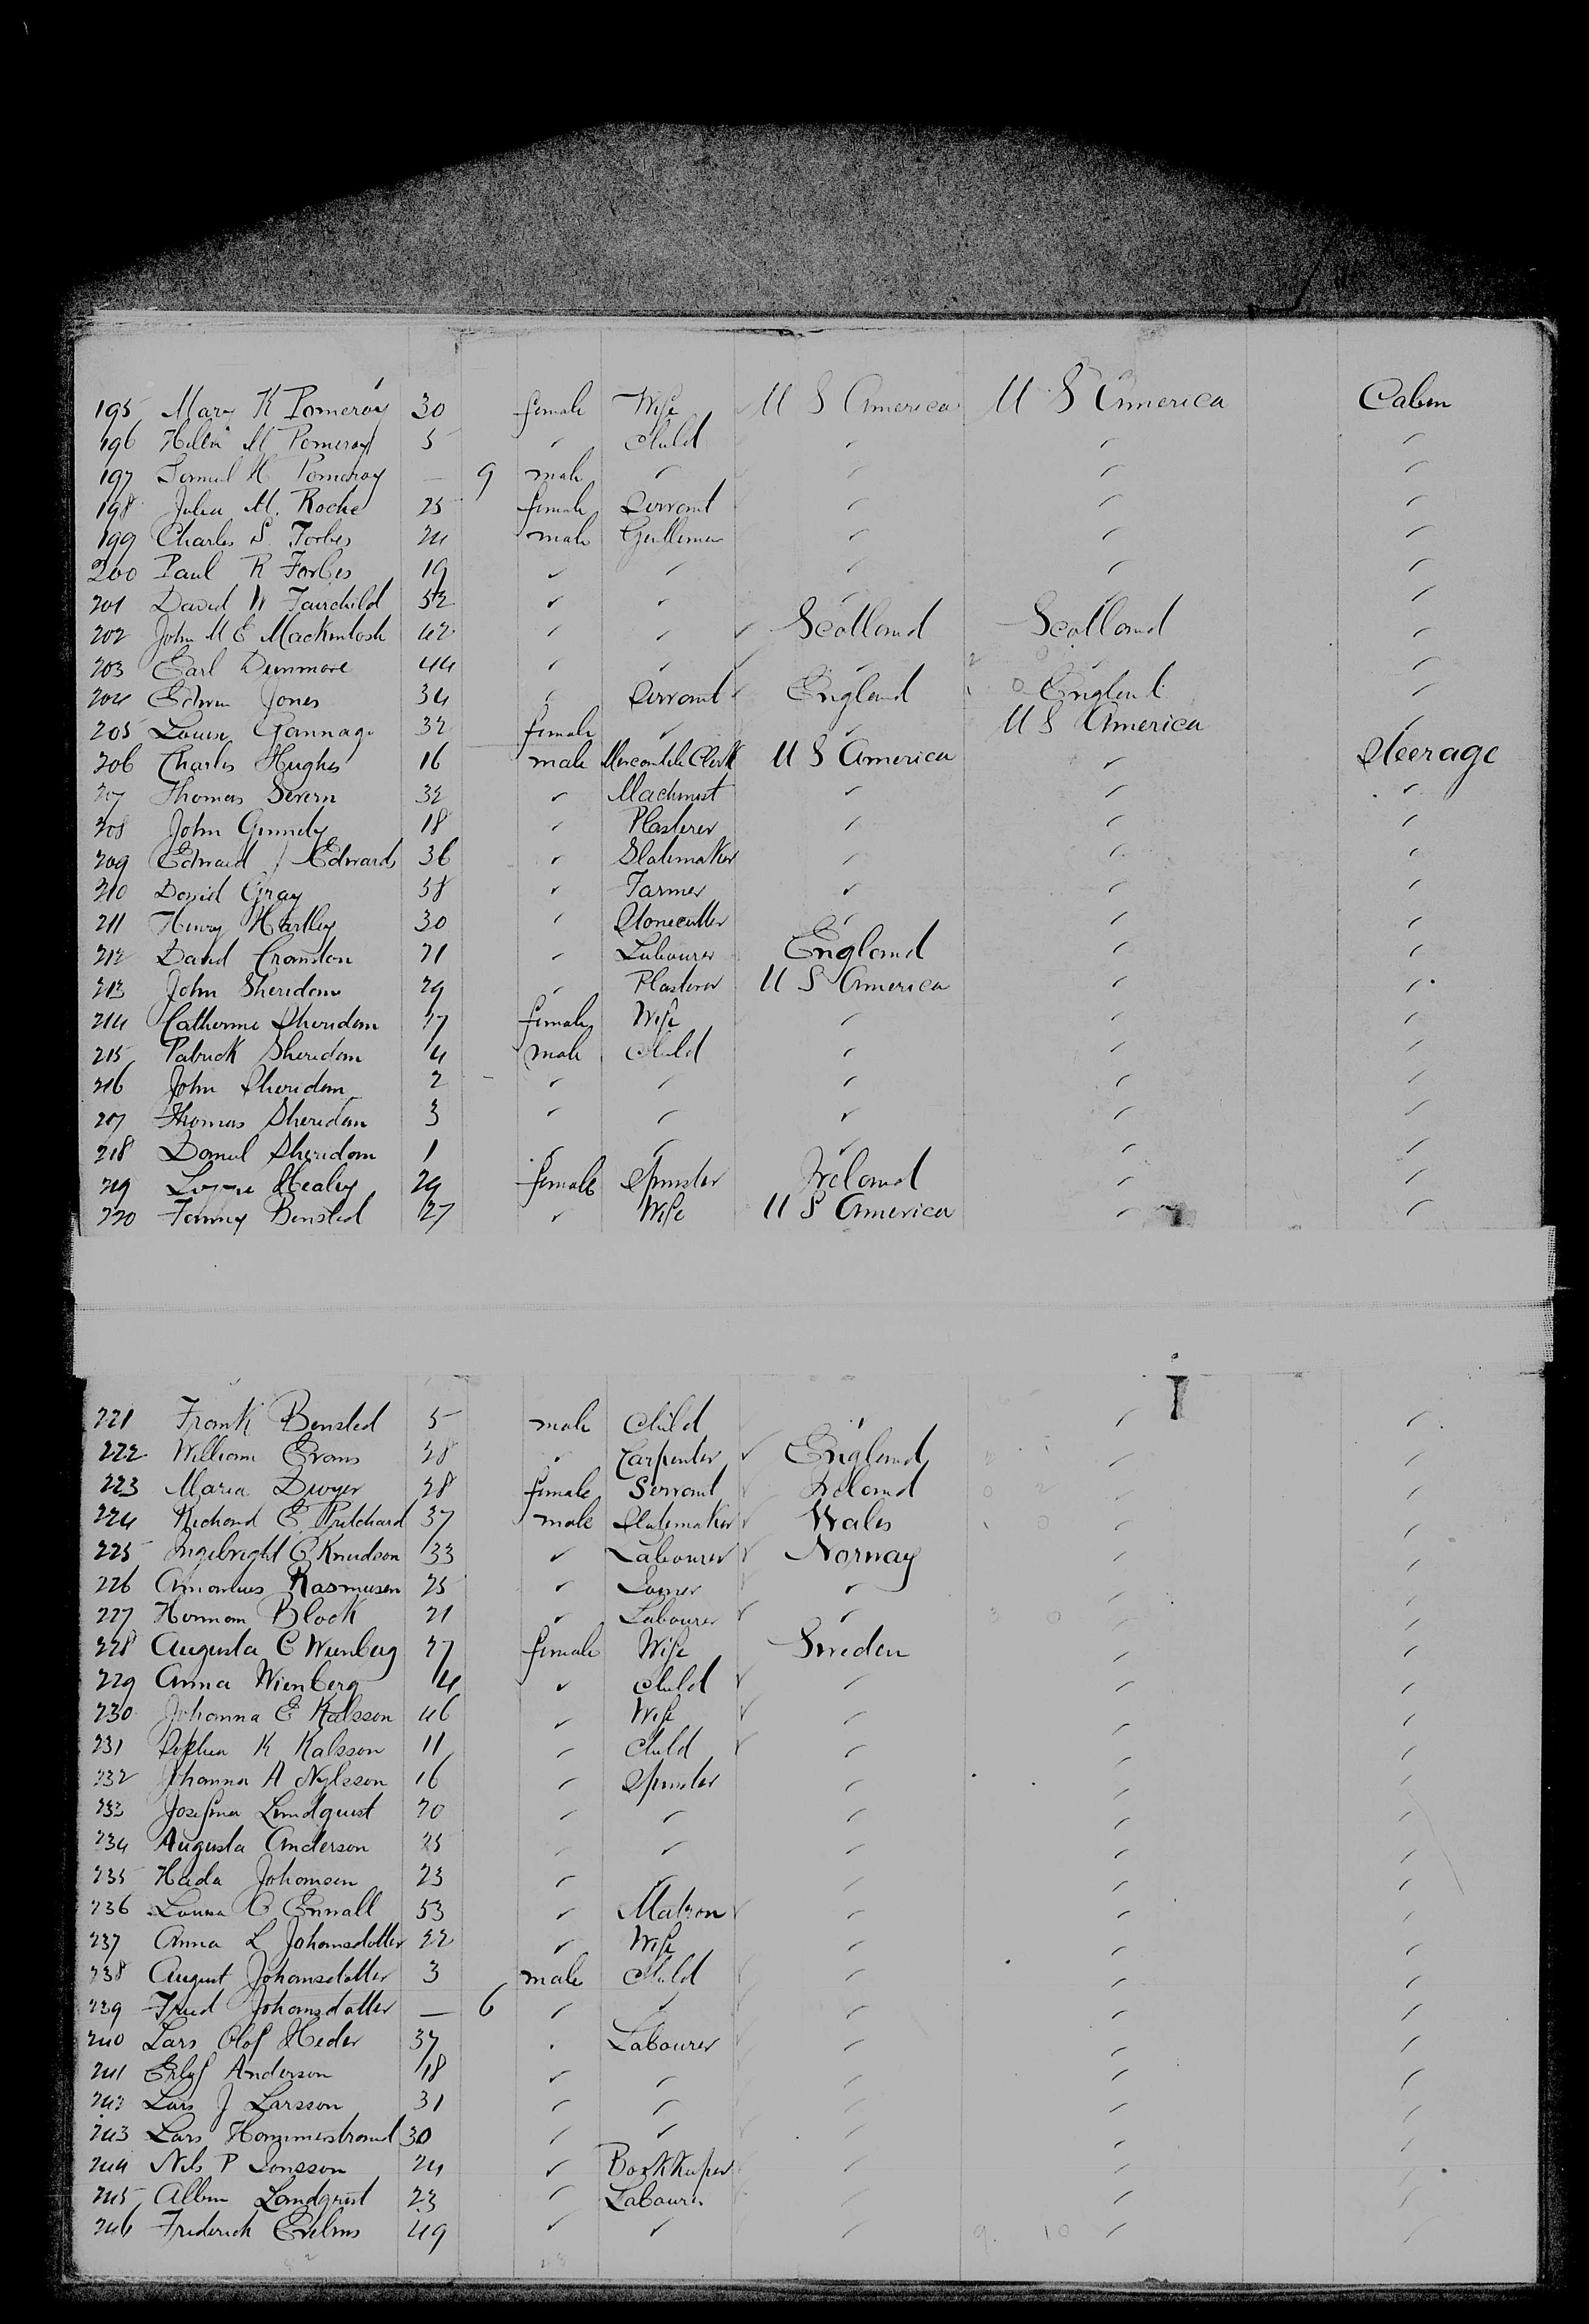 195 Mary K Pomeroy 30 female Wife U S America U S America Cabin
196 Helen M Pomeroy 5 ✓ Child ✓ ✓ ✓
197 Samuel H Pomeroy — 9 male ✓ ✓ ✓ ✓
198 Julia M. Roche 25 female Servant ✓ ✓ ✓
199 Charles S. Forbes 24 male Gentleman ✓ ✓ ✓
200 Paul R Forbes 19 ✓ ✓ ✓ ✓ ✓
201 David W Fairchild 52 ✓ ✓ ✓ ✓ ✓
202 John M E Mackintosh 42 ✓ ✓ Scotland Scotland ✓
203 Earl Dunmore 44 ✓ ✓ ✓ ✓ ✓
204 Edwin Jones 34 ✓ Servant England England ✓
205 Louise Gannage 32 female ✓ ✓ U S America ✓
206 Charles Hughes 16 male Mercantile Clerk U S America ✓ Steerage
207 Thomas Severn 32 ✓ Machinist ✓ ✓ ✓
208 John 18 ✓ Plasterer ✓ ✓ ✓
209 Edward J Edwards 36 ✓ Slatemaker ✓ ✓ ✓
210 David Gray 58 ✓ Farmer ✓ ✓ ✓
211 Henry Hartley 30 ✓ Stonecutter ✓ ✓ ✓
212 David Cromston 21 ✓ Labourer England ✓ ✓
213 John Sheridan 29 ✓ Plasterer U S America ✓ ✓
214 Catherine Sheridan 27 female Wife ✓ ✓ ✓
215 Patrick Sheridan 4 male Child ✓ ✓ ✓
216 John Sheridan 2 ✓ ✓ ✓ ✓ ✓
217 Thomas Sheridan 3 ✓ ✓ ✓ ✓ ✓
218 Daniel Sheridan 1 ✓ ✓ ✓ ✓ ✓
219 Lizzie Healey 29 female Spinster Ireland ✓ ✓
220 Fanny Bensted 27 ✓ Wife U S America ✓ ✓
221 Frank Bensted 5 male Child ✓ ✓ ✓
222 William Evans 28 ✓ Carpenter England ✓ ✓
223 Maria Dwyer 28 female Servant Ireland ✓ ✓
224 Richard E. Pritchard 37 male Slatemaker Wales ✓ ✓
225 Ingebright C Knudson 33 ✓ Labourer Norway ✓ ✓
226 Rasmusen 25 ✓ ✓ ✓ ✓
227 Herman Block 21 ✓ Labourer ✓ ✓ ✓
228 Augusta C Wienberg 27 female Wife Sweden ✓ ✓
229 Anna Wienberg 4 ✓ Child ✓ ✓ ✓
230 Johanna E Kalsson 46 ✓ Wife ✓ ✓ ✓
231 Sophia K Kalsson 11 ✓ Child ✓ ✓ ✓
232 Johanna A Nylsson 16 ✓ Spinster ✓ ✓ ✓
233 Josefina Lundquist 20 ✓ ✓ ✓ ✓ ✓
234 Augusta Anderson 25 ✓ ✓ ✓ ✓ ✓
235 Hada Johansen 23 ✓ ✓ ✓ ✓ ✓
236 Louisa C Ennall 53 ✓ Matron ✓ ✓ ✓
237 Anna L Johansdotter 22 ✓ Wife ✓ ✓ ✓
238 August Johansdotter 3 male Child ✓ ✓ ✓
239 Fried Johansdotter — 6 ✓ ✓ ✓ ✓ ✓
240 Lars Olof Heder 37 ✓ Labourer ✓ ✓ ✓
241 Anderson 18 ✓ ✓ ✓ ✓ ✓
242 Lars J Larsson 31 ✓ ✓ ✓ ✓ ✓
243 Lars 30 ✓ ✓ ✓ ✓ ✓
244 Nils P Jonsson 24 ✓ Bookkeeper ✓ ✓ ✓
245 Albin Landqvist 23 ✓ Labourer ✓ ✓ ✓
246 Frederick 49 ✓ ✓ ✓ ✓ ✓